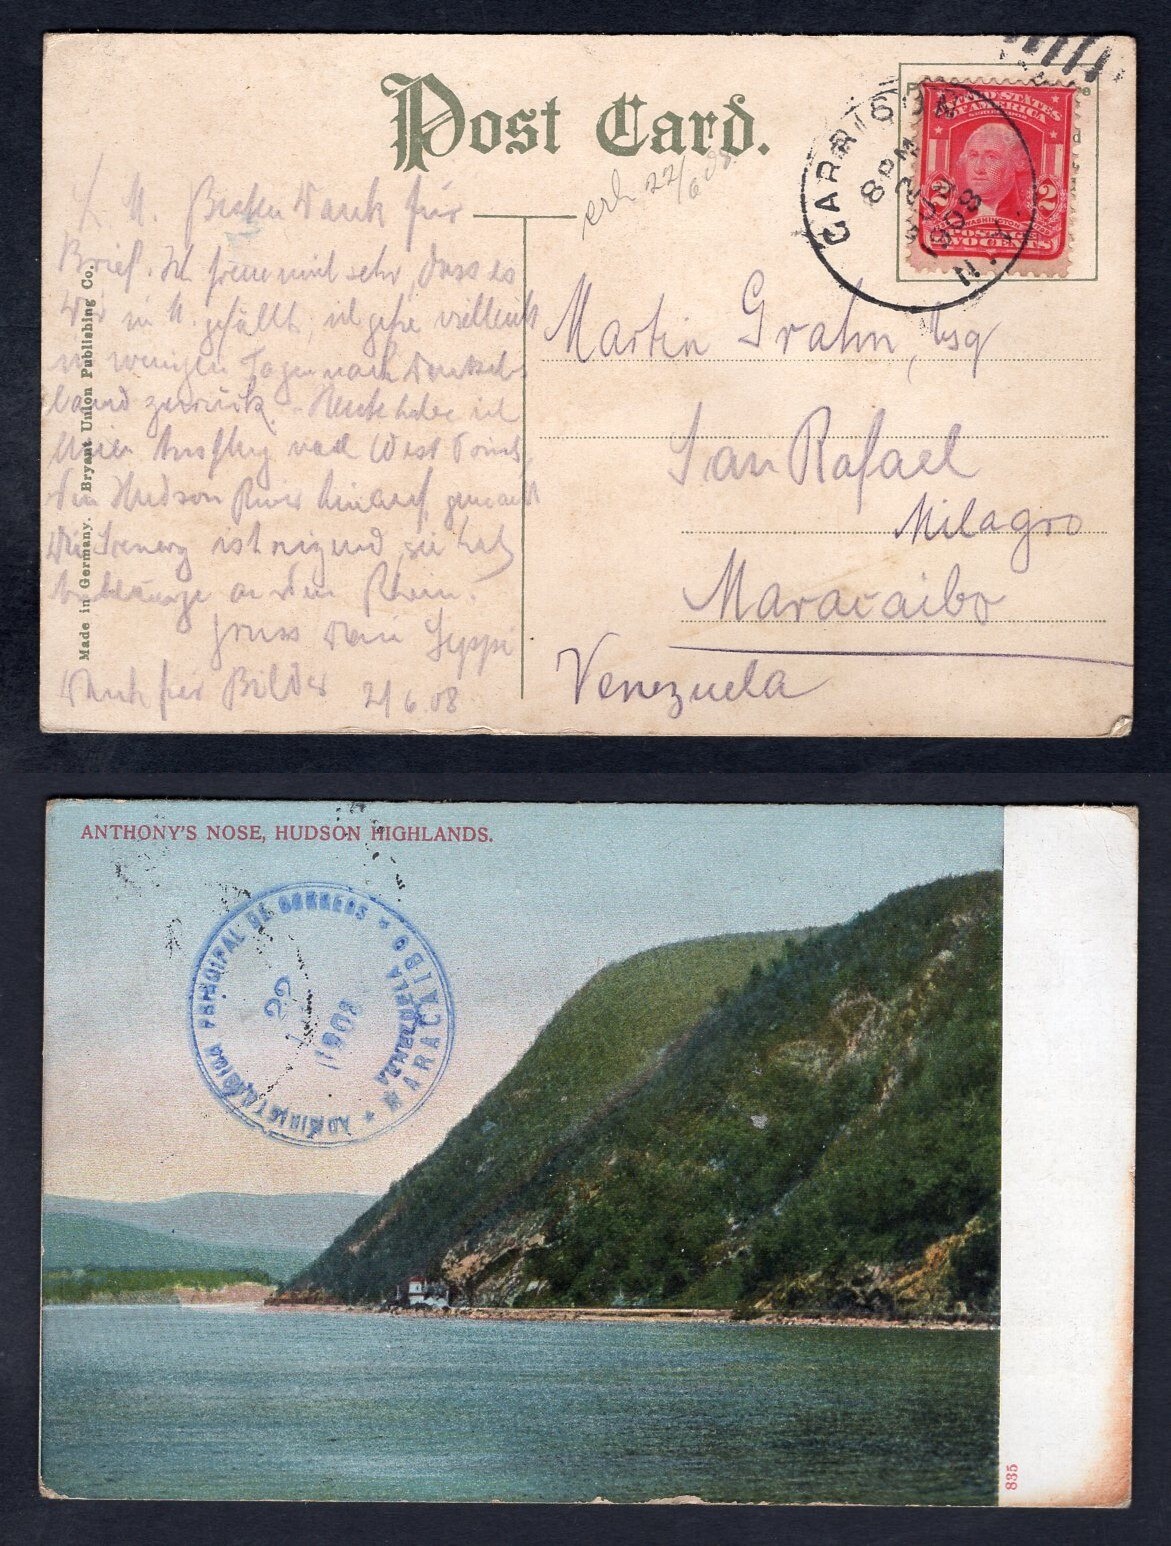 Post Card.
GARRISON
N.Y.
8 PM
1908
UNITED STATES
OF AMERICA
2 2
WASHINGTON
TWO CENTS
erh 22/6 08
Dank für
Brief. Ich freue mich sehr, dass es
Dir in M. gefällt, ich gehe vielleicht
in wenigen Tagen nach Deutsch-
land zurück. Heute habe ich
einen Ausflug nach West Point,
den Hudson River hinauf, gemacht
Die Scenery ist reizend, sie hat
an den Rhein.
Gruss Dein Seppi
Dank für Bilder 21/6.08
Made in Germany. Bryant Union Publishing Co.
Martin Grahn, Esq
San Rafael
Milagro
Maracaibo
Venezuela
ANTHONY'S NOSE, HUDSON HIGHLANDS.
PRINCIPAL DE CORREOS
MARACAIBO
VENEZUELA
22
1908
835